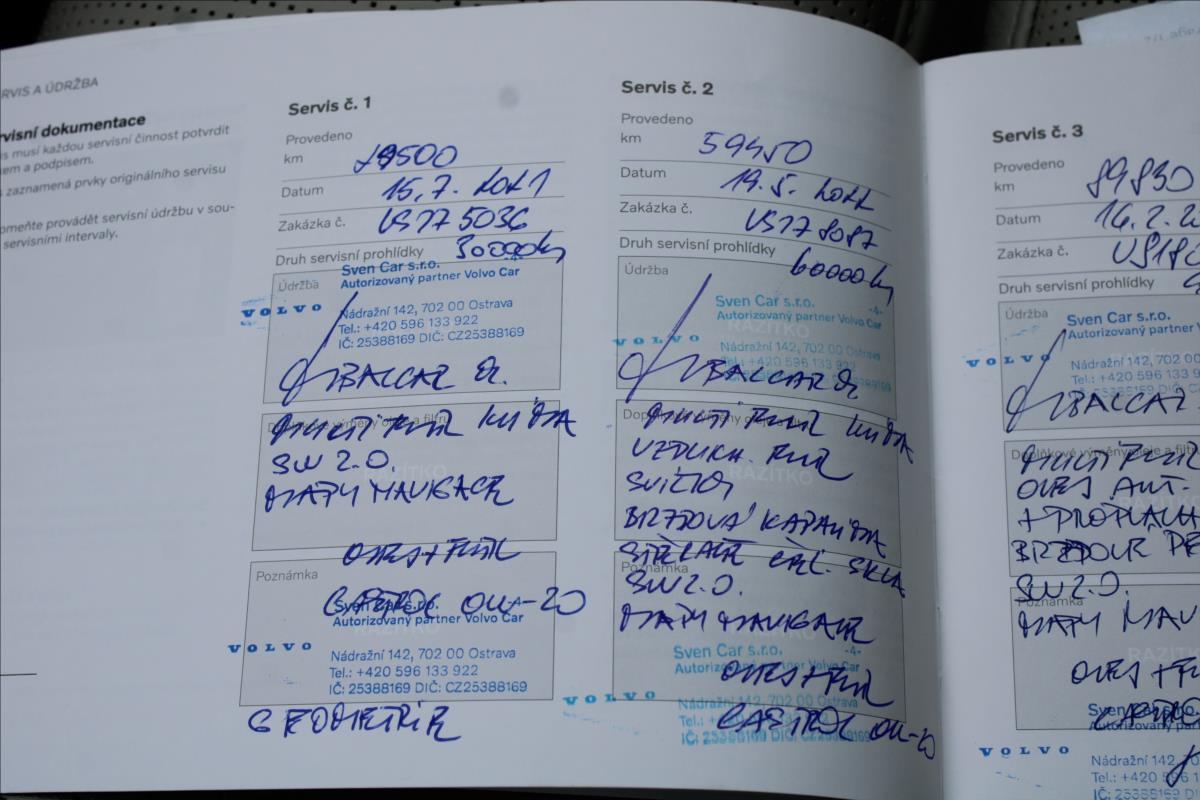 RVIS A ÚDRŽBA
visní dokumentace
is musí každou servisní činnost potvrdit
kem a podpisem.
s zaznamená prvky originálního servisu
omeňte provádět servisní údržbu v sou-
servisními intervaly.
Servis č. 1
Provedeno
km 29500
Datum 15.7. 2021
Zakázka č. US77 5036
Druh servisní prohlídky 30000km
Údržba
Sven Car s.r.o. -4-
Autorizovaný partner Volvo Car
VOLVO
Nádražní 142, 702 00 Ostrava
Tel.: +420 596 133 922
IČ: 25388169 DIČ: CZ25388169
BALCAR
MULTI FILTR KLIMA
SW 2.0.
MAPY NAVIGACE
RAZÍTKO
OLEJ + FILTR
Poznámka
CASTROL OW-20
Sven Car s.r.o.
Autorizovaný partner Volvo Car
RAZÍTKO
VOLVO
Nádražní 142, 702 00 Ostrava
Tel.: +420 596 133 922
IČ: 25388169 DIČ: CZ25388169
GEOMETRIE
Servis č. 2
Provedeno
km 59450
Datum 19.5. 2022
Zakázka č. US77 8087
Druh servisní prohlídky 60000km
Údržba
Sven Car s.r.o. -4-
Autorizovaný partner Volvo Car
RAZÍTKO
VOLVO
Nádražní 142, 702 00 Ostrava
Tel.: +420 596 133 922
IČ: 25388169 DIČ: CZ25388169
BALCAR
MULTI FILTR KLIMA
VZDUCH. FILTR
RAZÍTKO
BRZDOVÁ KAPALINA
STĚRAČE ČEL. SKLA
Poznámka
SW 2.0.
MAPY NAVIGACE
Sven Car s.r.o. -4-
Autorizovaný partner Volvo Car
OLEJ + FILTR
VOLVO
Nádražní 142, 702 00 Ostrava
CASTROL OW-20
IČ: 25388169 DIČ: CZ25388169
Servis č. 3
Provedeno
km 89830
Datum
Zakázka č.
Druh servisní prohlídky
Údržba
Sven Car s.r.o.
Autorizovaný partner
VOLVO
Nádražní 142, 702 00
Tel.: +420 596 133 9
BALCAR
Doplňkové výměny oleje a filtru
MULTI FILTR
OLEJ AUT.
+ PROPLACH
SW 2.0.
Poznámka
MAPY NAV
RAZÍTK
OLEJ + FIL
Sven Car s.r.o.
Autorizovaný part
VOLVO
Nádražní 142, 70
Tel.: +420 596
IČ: 25388169